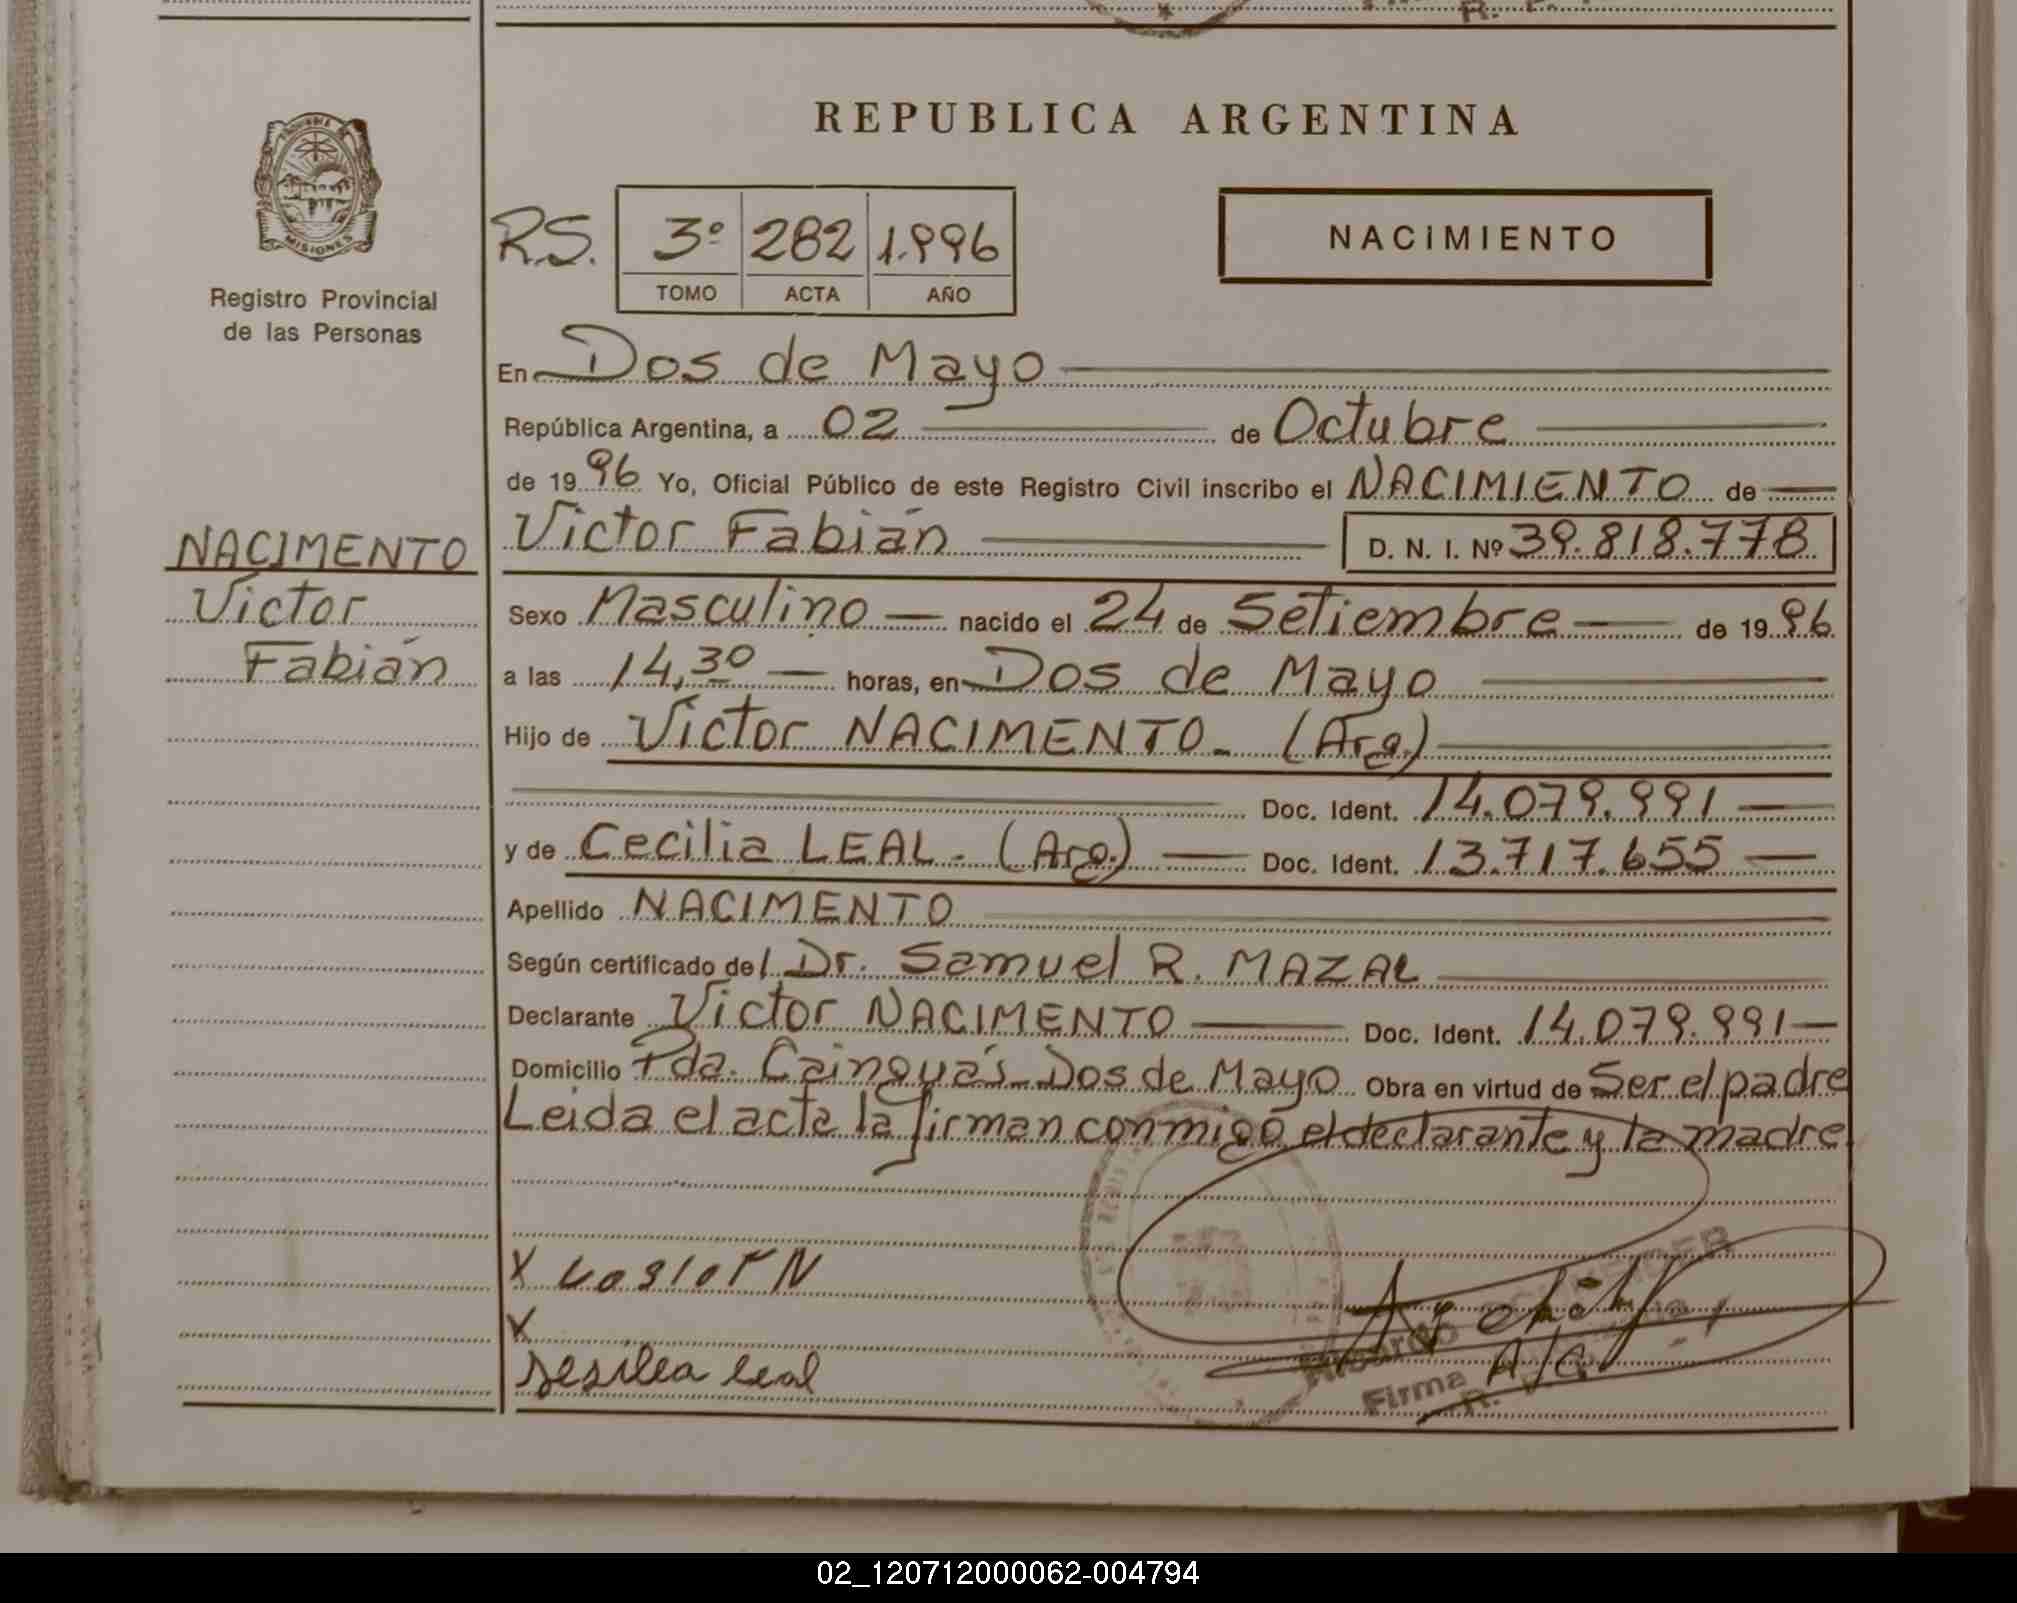 REPUBLICA ARGENTINA
PROVINCIA DE
MISIONES
Registro Provincial
de las Personas
R.S. 3º 282 1.996
TOMO ACTA AÑO
NACIMIENTO
En Dos de Mayo
República Argentina, a 02 de Octubre
de 1996 Yo, Oficial Público de este Registro Civil inscribo el NACIMIENTO de
Victor Fabián D. N. I. Nº 39.818.778
NACIMENTO
Victor
Fabián
Sexo Masculino nacido el 24 de Setiembre de 1996
a las 14,30 horas, en Dos de Mayo
Hijo de Victor NACIMENTO. (Arg.)
Doc. Ident. 14.079.991
y de Cecilia LEAL. (Arg.) Doc. Ident. 13.717.655
Apellido NACIMENTO
Según certificado del Dr. Samuel R. MAZAL
Declarante Victor NACIMENTO Doc. Ident. 14.079.991
Domicilio Pda. Cainguás Dos de Mayo Obra en virtud de Ser el padre
Leida el acta la firman conmigo el declarante y la madre
X
X
leal
Ricardo
Firma A/C
02_120712000062-004794